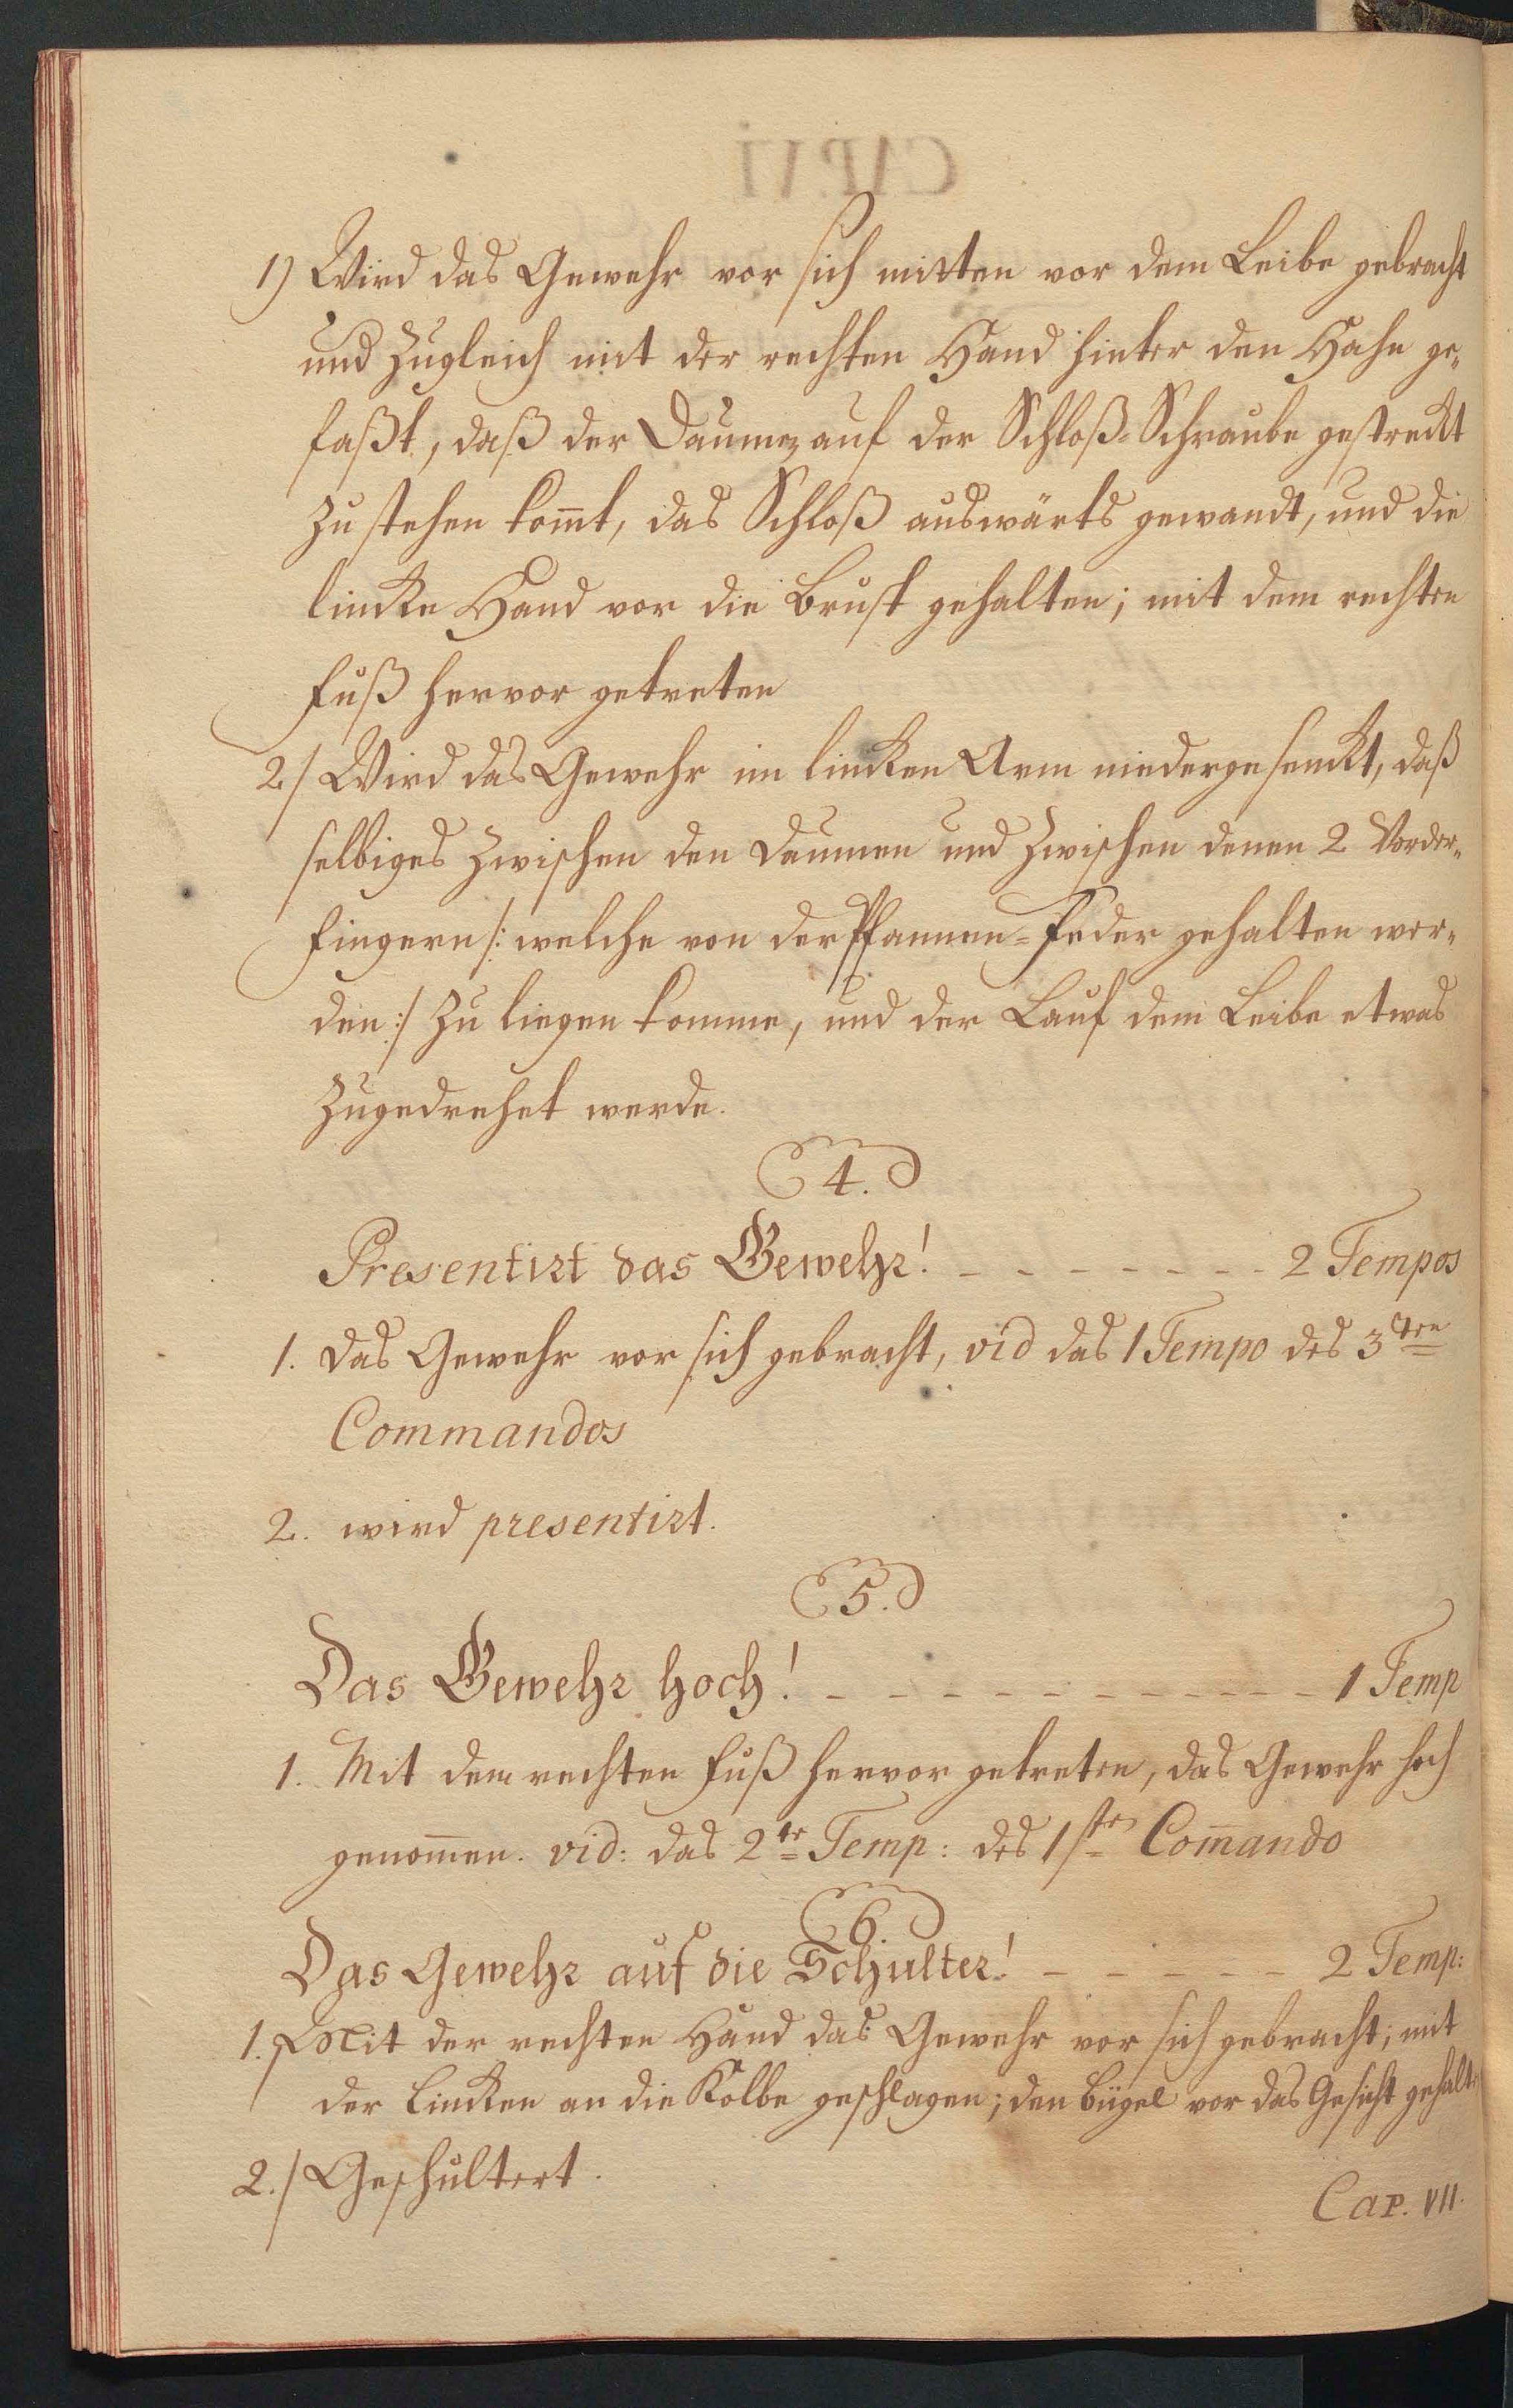 1) Wird das Gewehr vor sich mitten vor dem Leibe gebracht
und zugleich mit der rechten Hand hinter den Hahn ge„
faßt, daß der Daumen auf der Schloß-Schraube gestreckt
zu stehen kom̅t, das Schloß auswärts gewandt, und die
lincke Hand vor die Brust gehalten; mit dem rechten
Fuß hervor getreten
2/ Wird das Gewehr im lincken Arm niedergesenckt, daß
selbiges zwischen den Daumen und zwischen denen 2 Vorder„
fingern /: welche von der Pfannen-Feder gehalten wer„
den :/ zu liegen komme, und der Lauf dem Leibe etwas
zugedrehet werde.
4.
Presentirt das Gewehr! - - - - - - - - 2 Tempos
1. Das Gewehr vor sich gebracht, vid das 1 Tempo des 3ten
Commandos
2. wird presentirt.
5.
Das Gewehr hoch! - - - - - - - - - - - 1 Temp
1. Mit dem rechten Fuß hervor getreten, das Gewehr hoch
genom̅en. vid: das 2te Temp: des 1ste Com̅ando
6.
Das Gewehr auf die Schulter! - - - - - - 2 Temp:
1. Mit der rechten Hand das Gewehr vor sich gebracht; mit
der Lincken an die Kolbe geschlagen; den Bügel vor das Gesicht gehalt
2./ Geschultert.
Cap. VII.